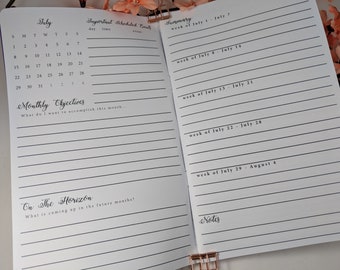 July
S M T W T F S
1 2 3 4 5 6 7
8 9 10 11 12 13 14
15 16 17 18 19 20 21
22 23 24 25 26 27 28
29 30 31
Important Scheduled Events
day time event
Monthly Objectives
What do I want to accomplish this month
On The Horizon
What is coming up in the future months?
Summary
week of July 1 - July 7
week of July 8 - July 14
week of July 15 - July 21
week of July 22 - July 28
week of July 29 - August 4
Notes